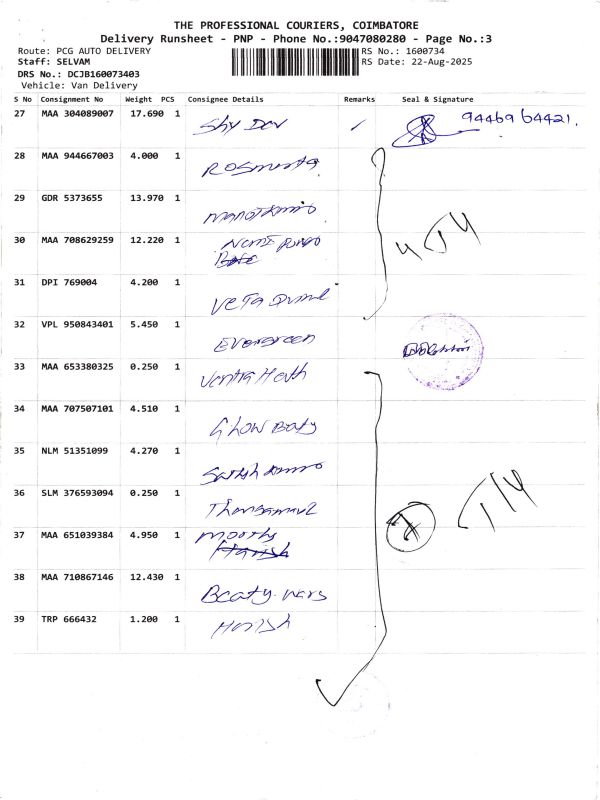 THE PROFESSIONAL COURIERS, COIMBATORE
Delivery Runsheet - PNP - Phone No.:9047080280 - Page No.:3
Route: PCG AUTO DELIVERY RS No.: 1600734
Staff: SELVAM RS Date: 22-Aug-2025
DRS No.: DCJB160073403
Vehicle: Van Delivery
S No Consignment No Weight PCS Consignee Details Remarks Seal & Signature
27 MAA 304089007 17.690 1 Shy Dev ✓ 94469 64421.
28 MAA 944667003 4.000 1
29 GDR 5373655 13.970 1
30 MAA 708629259 12.220 1
31 DPI 769004 4.200 1
32 VPL 950843401 5.450 1 Evergreen
33 MAA 653380325 0.250 1
34 MAA 707507101 4.510 1 Glow Baty
35 NLM 51351099 4.270 1
36 SLM 376593094 0.250 1
37 MAA 651039384 4.950 1 Moorthy
Harish
38 MAA 710867146 12.430 1
39 TRP 666432 1.200 1 Harish